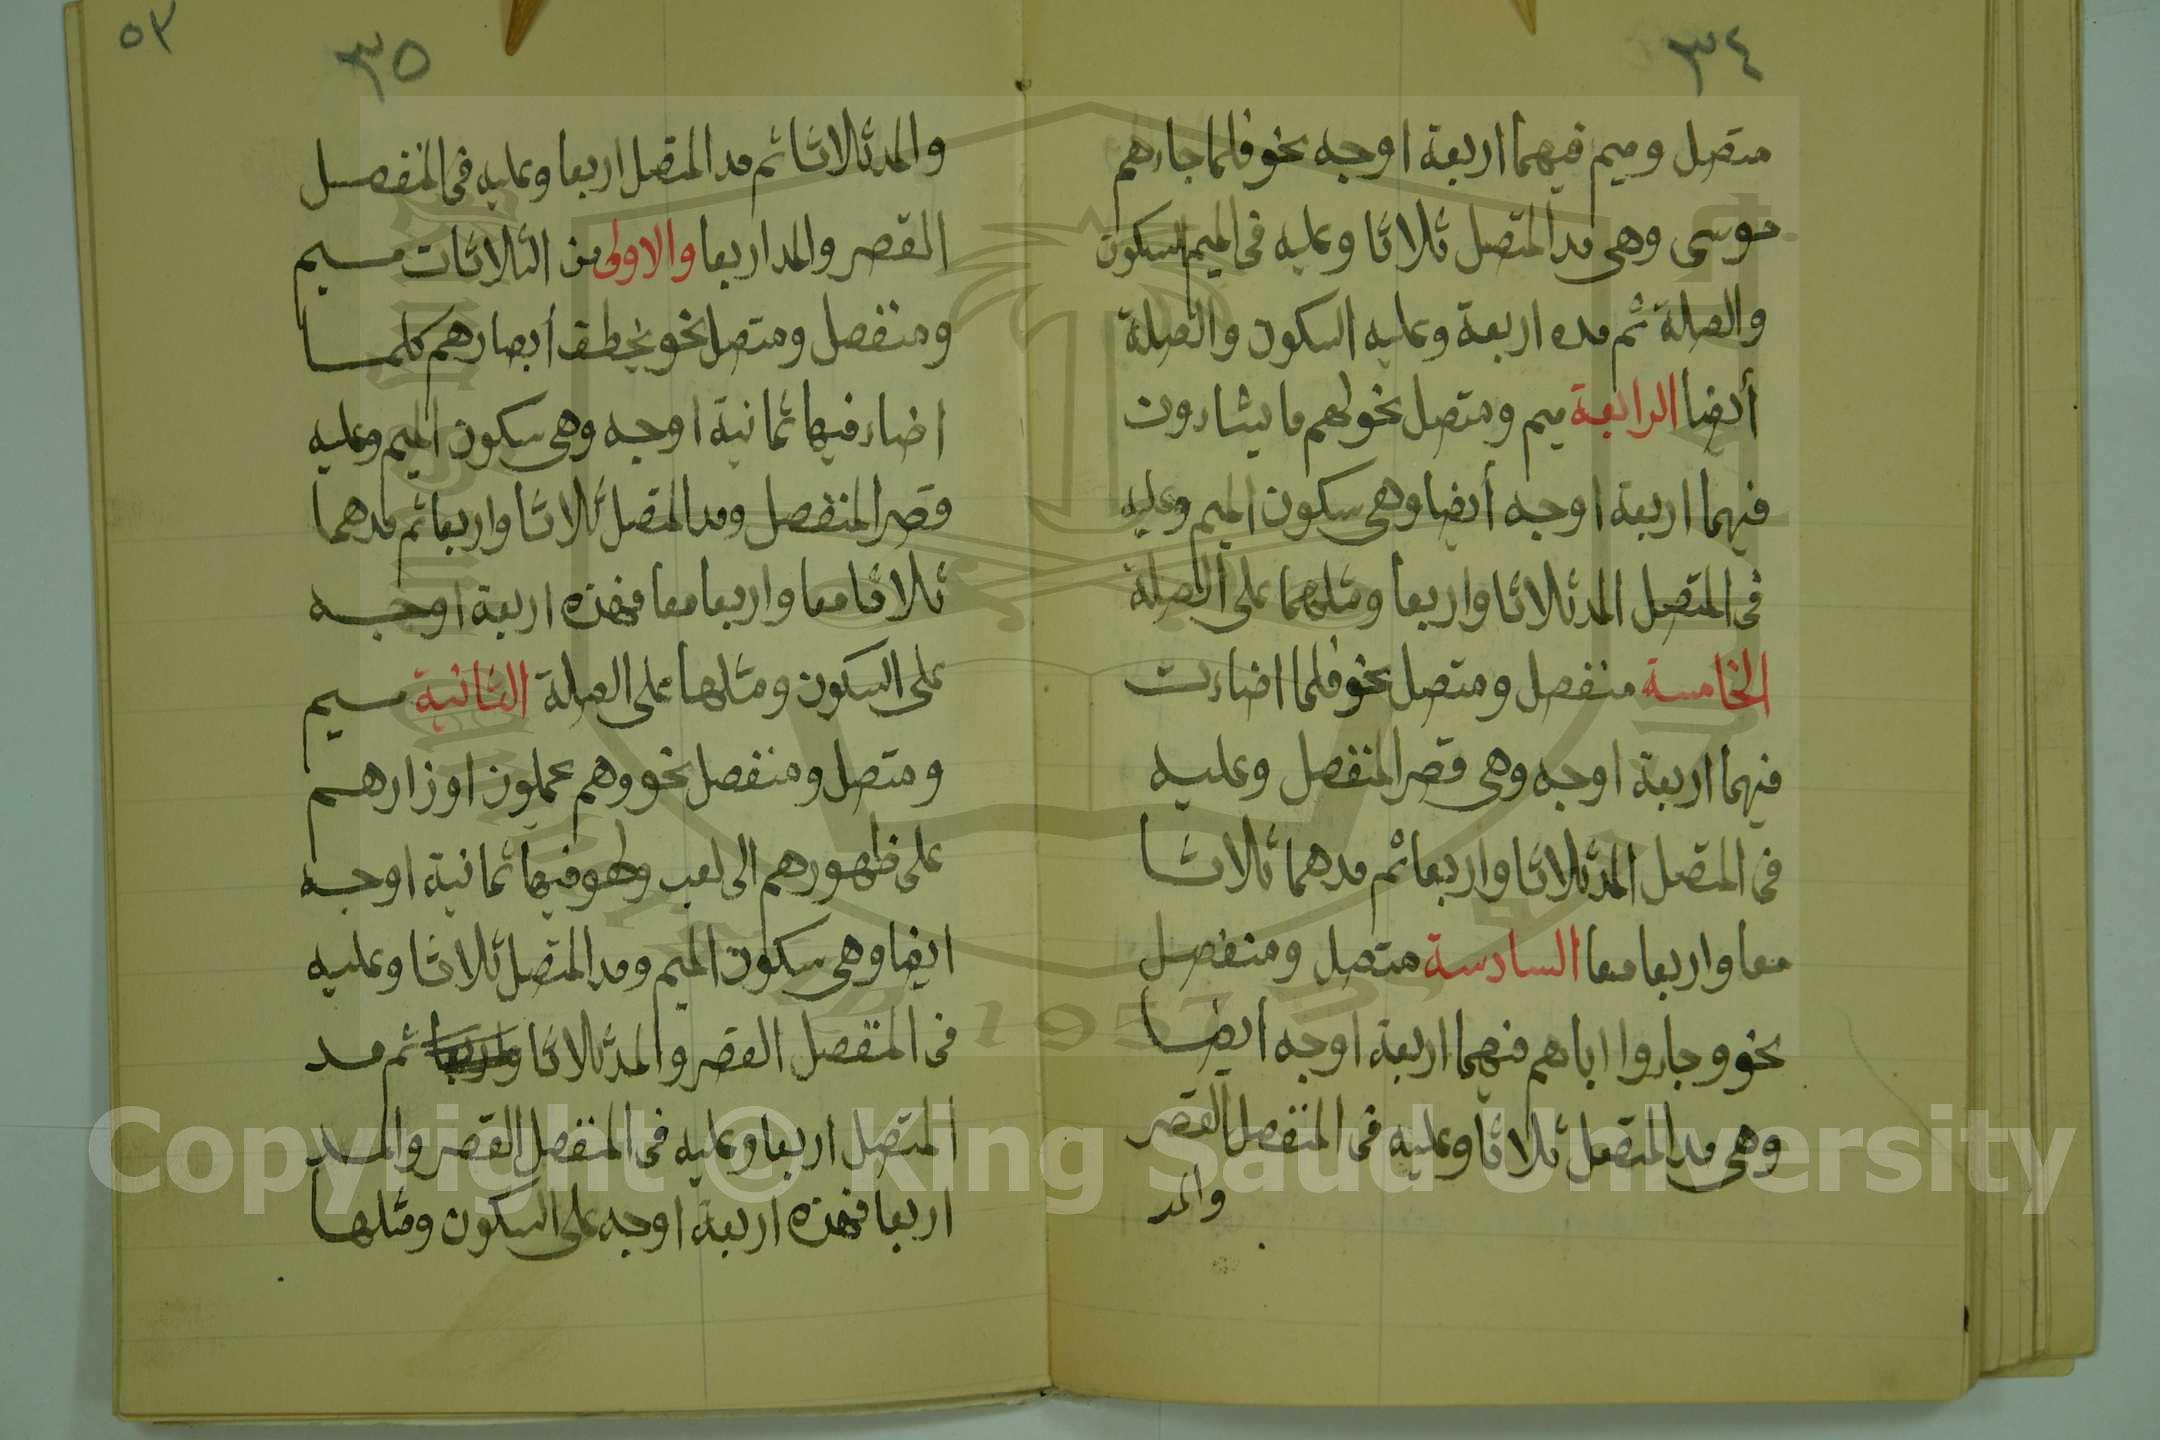 ٣٤
متصل وميم فيهما اربعة اوجه نحو فلما جاءهم
موسى وهى مد المتصل ثلاثا وعليه فى الميم السكون
والصلة ثم مده اربعة وعليه السكون والصلة
أيضا الرابعة ميم ومتصل نحو لهم ما يشاءون
فيهما اربعة اوجه أيضا وهى سكون الميم وعليه
فى المتصل المد ثلاثا واربعا ومثلهما على الصلة
الخامسة منفصل ومتصل نحو فلما اضاءت
فيهما اربعة اوجه وهى قصر المنفصل وعليه
فى المتصل المد ثلاثا واربعا ثم مدهما ثلاثا
معا واربعا معا السادسة متصل ومنفصل
نحو وجاءوا اباهم فيهما اربعة اوجه ايضا
وهى مد المتصل ثلاثا وعليه فى المنفصل القصر
والمد
٥٢
٣٥
والمد ثلاثا ثم مد المتصل اربعا وعليه فى المنفصل
القصر والمد اربعا والاولى من الثلاثات ميم
ومنفصل ومتصل نحو يخطف أبصارهم كلما
اضاء فيها ثمانية اوجه وهى سكون الميم وعليه
قصر المنفصل ومد المتصل ثلاثا واربعا ثم مدهما
ثلاثا معا واربعا معا فهذه اربعة اوجه
على السكون ومثلها على الصلة الثانية ميم
ومتصل ومنفصل نحو وهم يحملون اوزارهم
على ظهورهم الى لعب ولهو فيها ثمانية اوجه
ايضا وهى سكون الميم ومد المتصل ثلاثا وعليه
فى المنفصل القصر والمد ثلاثا واربعا ثم مد
المتصل اربعا وعليه فى المنفصل القصر والمد
اربعا فهذه اربعة اوجه على السكون ومثلها
1957
Copyright © King Saud University